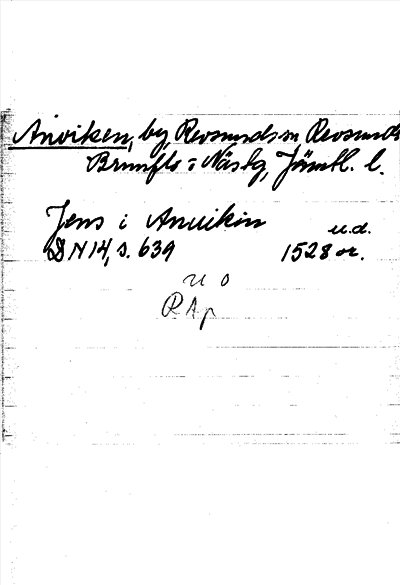 Anviken, by Revsunds sn Revsunds
Brunflo o Näs tg, Jämtl. l.
Jens i Anuikin u.d.
DN 14, s. 639 1528 or.
u o
RAp